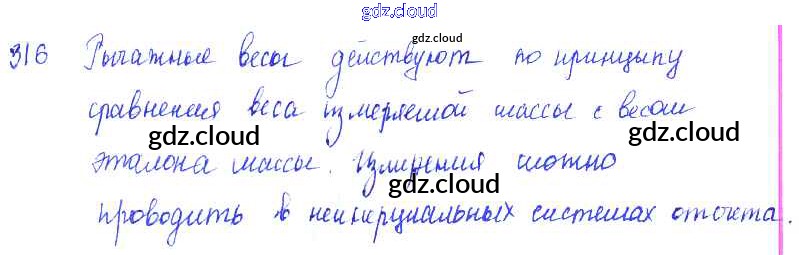 gdz.cloud
gdz.cloud
316 Рычажные весы действуют по принципу
сравнения веса измеряемой массы с весом
gdz.cloud
gdz.cloud
эталона массы. Измерения можно
gdz.cloud
проводить в неинерциальных системах отсчета.